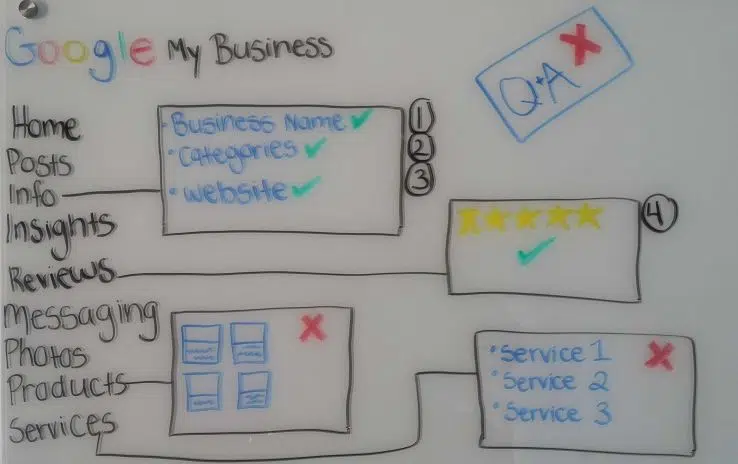 Google My Business
Q+A
Home
Posts
Info
Insights
Reviews
Messaging
Photos
Products
Services
• Business Name ✓
• Categories ✓
• Website ✓
1
2
3
4
• Service 1
• Service 2
• Service 3